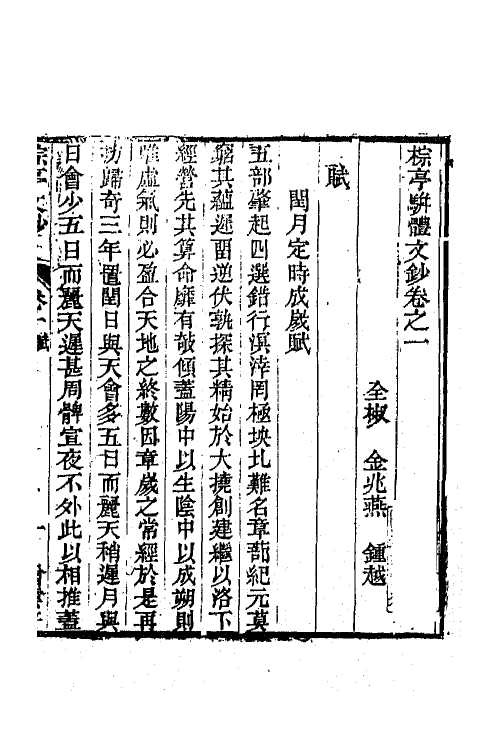 棕亭駢體文鈔卷之一
全椒 金兆燕 鍾越
賦
閏月定時成歲賦
五部肇起四選錯行溟涬罔極坱圠難名章蔀紀元莫
窮其蘊遲畱逆伏孰探其精始於大撓創建繼以洛下
經營先其算命靡有攲傾蓋陽中以生陰中以成朔則
惟虛氣則必盈合天地之終數因章歲之常經於是再
扐歸奇三年置閏日與天會多五日而麗天稍遲月與
日會少五日而麗天遲甚周髀宣夜不外此以相推蓋
棕亭文鈔 卷一 賦 一